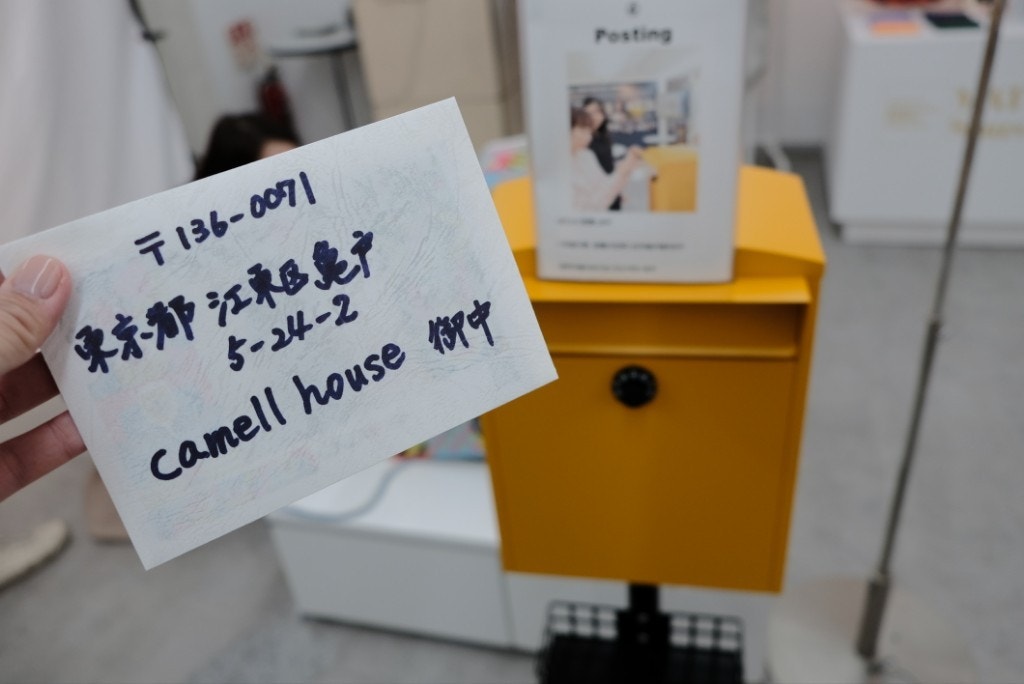 Posting
〒136-0071
東京都 江東区亀戸
5-24-2
camell house 御中